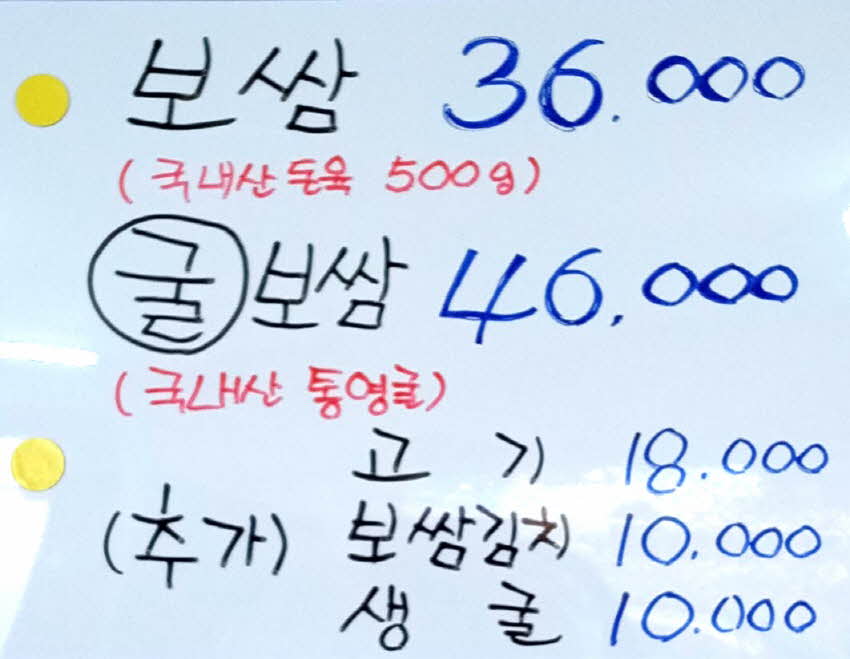 보쌈 36.000
(국내산 돈육 500g)
굴보쌈 46.000
(국내산 통영굴)
고기 18.000
(추가) 보쌈김치 10.000
생굴 10.000